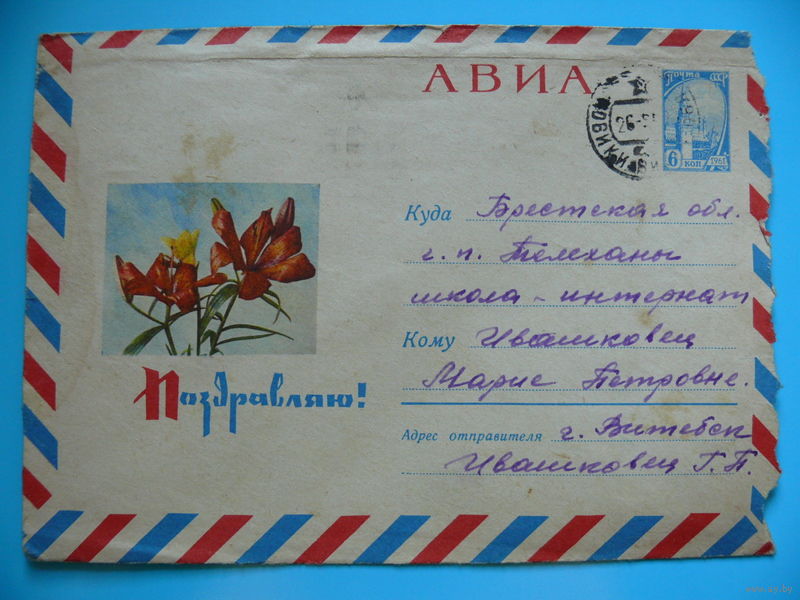 АВИА
Почта СССР
6 коп 1961
26
Куда Брестская обл.
г. п. Телеханы
школа - интернат
Кому Ивашковец
Марие Петровне.
Поздравляю!
Адрес отправителя г. Витебск
Ивашковец Г. П.
www.ay.by